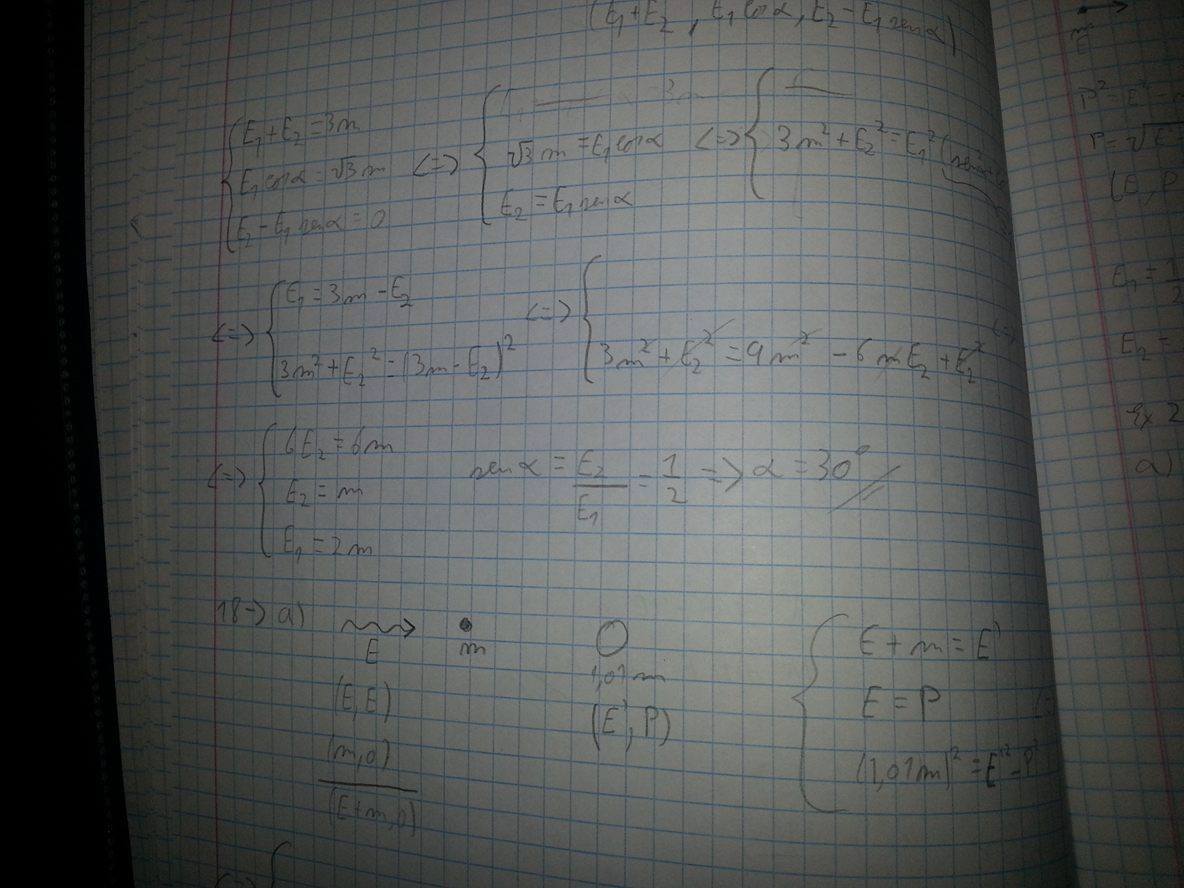 (E₁+E₂ , E₁ cos α, E₂ – E₁ sen α)
{ E₁+E₂ = 3m
E₁ cos α = √3 m
E₂ – E₁ sen α = 0
<=> {
√3 m = E₁ cos α
E₂ = E₁ sen α
<=> {
3m² + E₂² = E₁²
<=> { E₁ = 3m – E₂
3m² + E₂² = (3m – E₂)²
<=> {
3m² + E₂² = 9m² – 6mE₂ + E₂²
<=> { 6E₂ = 6m
E₂ = m
E₁ = 2m
sen α = E₂/E₁ = 1/2 => α = 30° //
18-> a)
E
m
1,01m
(E,E)
(m,0)
(E+m,0)
(E',P)
{ E + m = E'
E = P
(1,01m)² = E'² – P²
<=> {
P²=E²
P=√E²
(E,P
E₁ = 1/2
E₂ =
Ex 2
a)